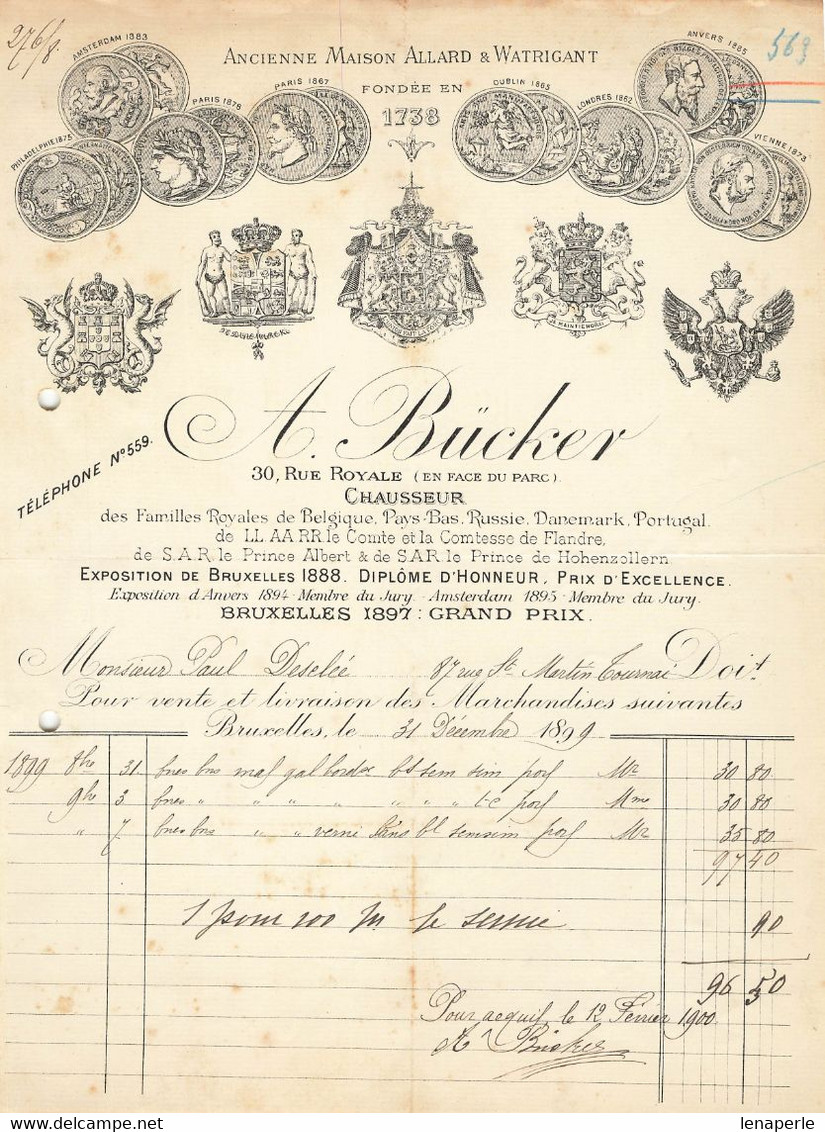 276/8.
563
AMSTERDAM 1883
ANCIENNE MAISON ALLARD & WATRIGANT
ANVERS 1885
PARIS 1867
FONDÉE EN
DUBLIN 1865
PARIS 1878
1738
LONDRES 1862
PHILADELPHIE 1875
VIENNE 1873
JE MAINTIENDRAI
A. Bücker
TÉLÉPHONE N° 559.
30, RUE ROYALE (EN FACE DU PARC).
CHAUSSEUR
des Familles Royales de Belgique, Pays-Bas, Russie, Danemark, Portugal.
de LL AA RR. le Comte et la Comtesse de Flandre,
de S.A.R. le Prince Albert & de S.A.R. le Prince de Hohenzollern
EXPOSITION DE BRUXELLES 1888. DIPLÔME D'HONNEUR, PRIX D'EXCELLENCE.
Exposition d'Anvers 1894 - Membre du Jury. - Amsterdam 1895 - Membre du Jury.
BRUXELLES 1897 : GRAND PRIX.
Monsieur Paul Deselée 87 rue St Martin Tournai Doit
Pour vente et livraison des Marchandises suivantes
Bruxelles, le 31 Décembre 1899
1899 8bre 31 Mr 30 80
9bre 3 " " " " " " Mme 30 80
" 7 " " verni Mr 35 80
97 40
1 pour 100 90
96 50
Pour acquit, le 12 Février 1900
A. Bücker
delcampe.net
lenaperle